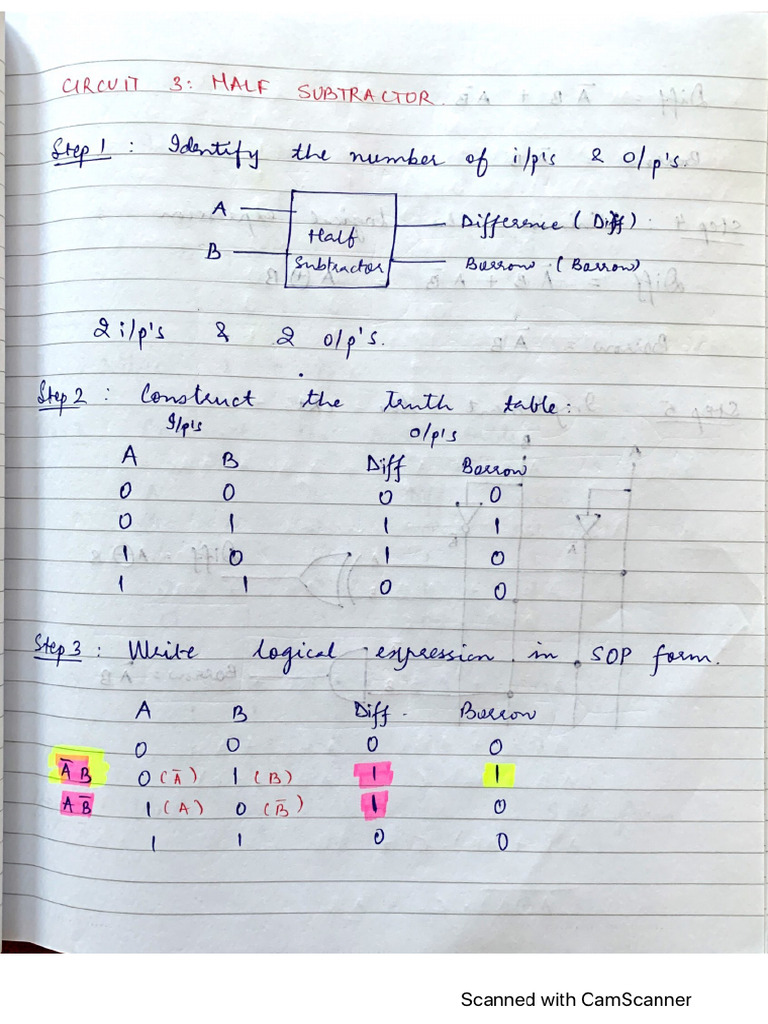 CIRCUIT 3: HALF SUBTRACTOR.
Step 1 : Identify the number of i/p's & o/p's.
A
Difference ( Diff) .
Half
B
Subtractor
Borrow . ( Borrow)
2 i/p's & 2 o/p's.
Step 2 : Construct the truth table :
I/p's o/p's
A B Diff Borrow
0 0 0 0
0 1 1 1
1 0 1 0
1 1 0 0
Step 3 : Write logical expression in SOP form.
A B Diff . Borrow
0 0 0 0
A̅ B 0 (A̅) 1 (B) 1 1
A B̅ 1 (A) 0 (B̅) 1 0
1 1 0 0
Scanned with CamScanner